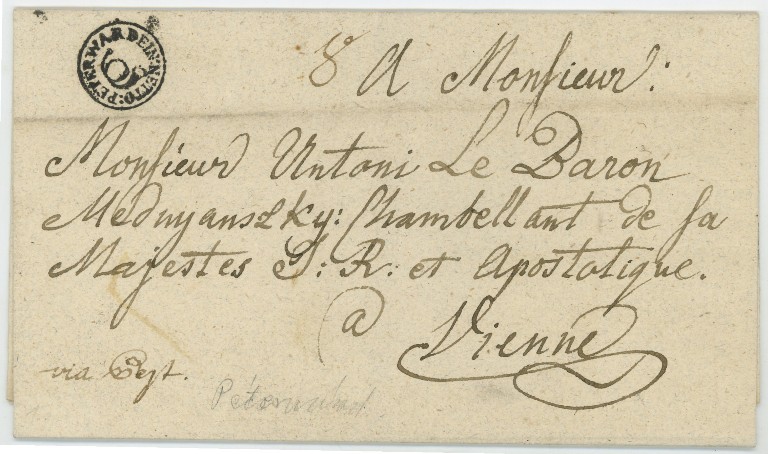 PETERWARDEIN: NETTO: 6
8 A Monsieur:
Monsieur Antoni Le Baron
Mednyanszky: Chambellant de sa
Majestes I: R: et Apostolique.
a Vienne
via Pest.